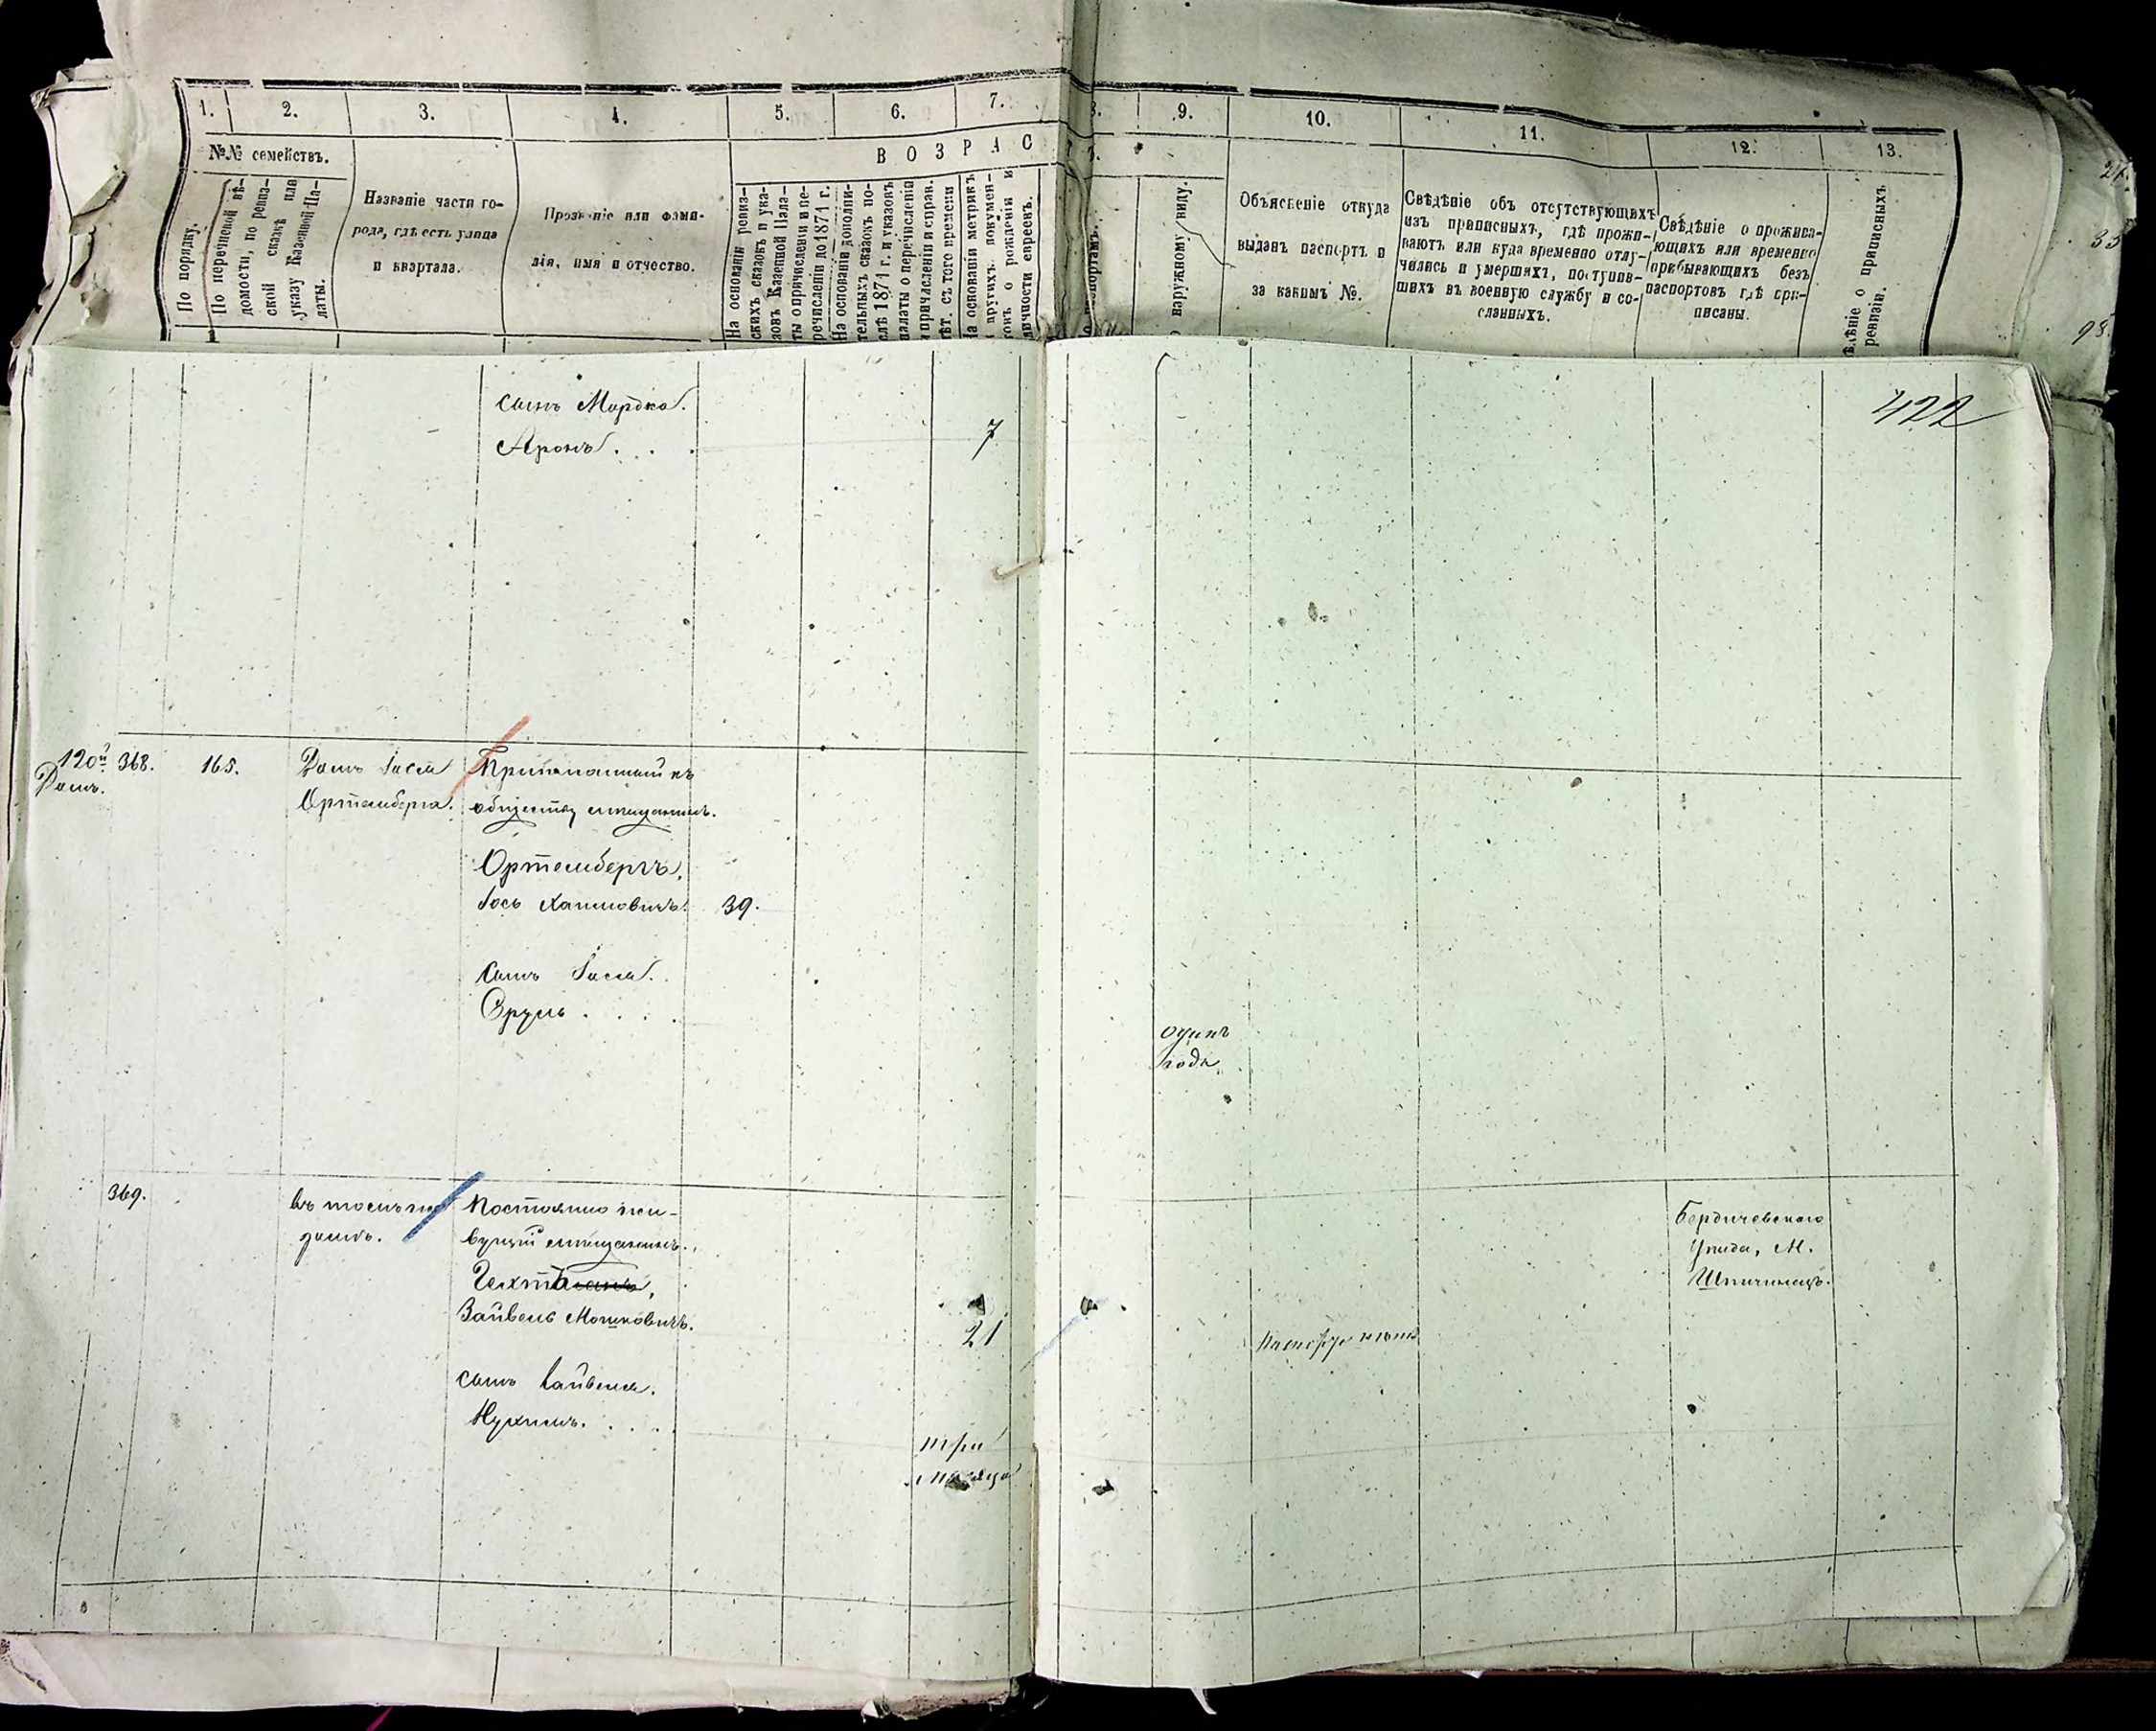 1. 2. 3. 4. 5. 6. 7. 8. 9. 10. 11. 12. 13.
№№ семействъ.
В О З Р А С Т
По порядку.
По перечневой вѣ-
домости, по ревиз-
ской сказкѣ или
указу Казенной Па-
латы.
Названіе части го-
рода, гдѣ есть улица
и квартала.
Прозваніе или фами-
лія, имя и отчество.
На основаніи ревиз-
скихъ сказокъ и ука-
зовъ Казенной Пала-
ты о причисленіи и пе-
речисленіи до 1871 г.
На основаніи дополни-
тельныхъ сказокъ по-
слѣ 1871 г. и указовъ
палаты о перечисленіи
и причисленіи и справ.
лѣт. съ того времени
На основаніи метрикъ
и другихъ докумен-
товъ о рожденіи и
личности евреевъ.
наружному виду.
Объясненіе откуда
выданъ паспортъ и
за какимъ №.
Свѣдѣніе объ отсутствующихъ
изъ приписныхъ, гдѣ прожи-
ваютъ или куда временно отлу-
чились и умершихъ, поступив-
шихъ въ военную службу и со-
сланныхъ.
Свѣдѣніе о прожива-
ющихъ или временно
прибывающихъ безъ
паспортовъ гдѣ при-
писаны.
ѣдѣніе о приписныхъ
ревизіи.
422
сынъ Мордка.
Аронъ . . . 7
120й 368. 165. Домъ Іося Приписанный къ
Домъ. Ортемберга. обществу мѣщанинъ.
Ортембергъ,
Іось Хаимовичъ. 39.
Сынъ Іося.
Срулъ . . . .
одинъ
годъ.
369. въ томъ же Постоянно жи-
домѣ. вущій мѣщанинъ.
Бердичевскаго
Уѣзда, М.
Шпичинецъ.
Гехт
Зайвель Мошковичъ. 21
Паспорта нѣтъ
сынъ Зайвеля.
Нухимъ. . . .
три
мѣсяца